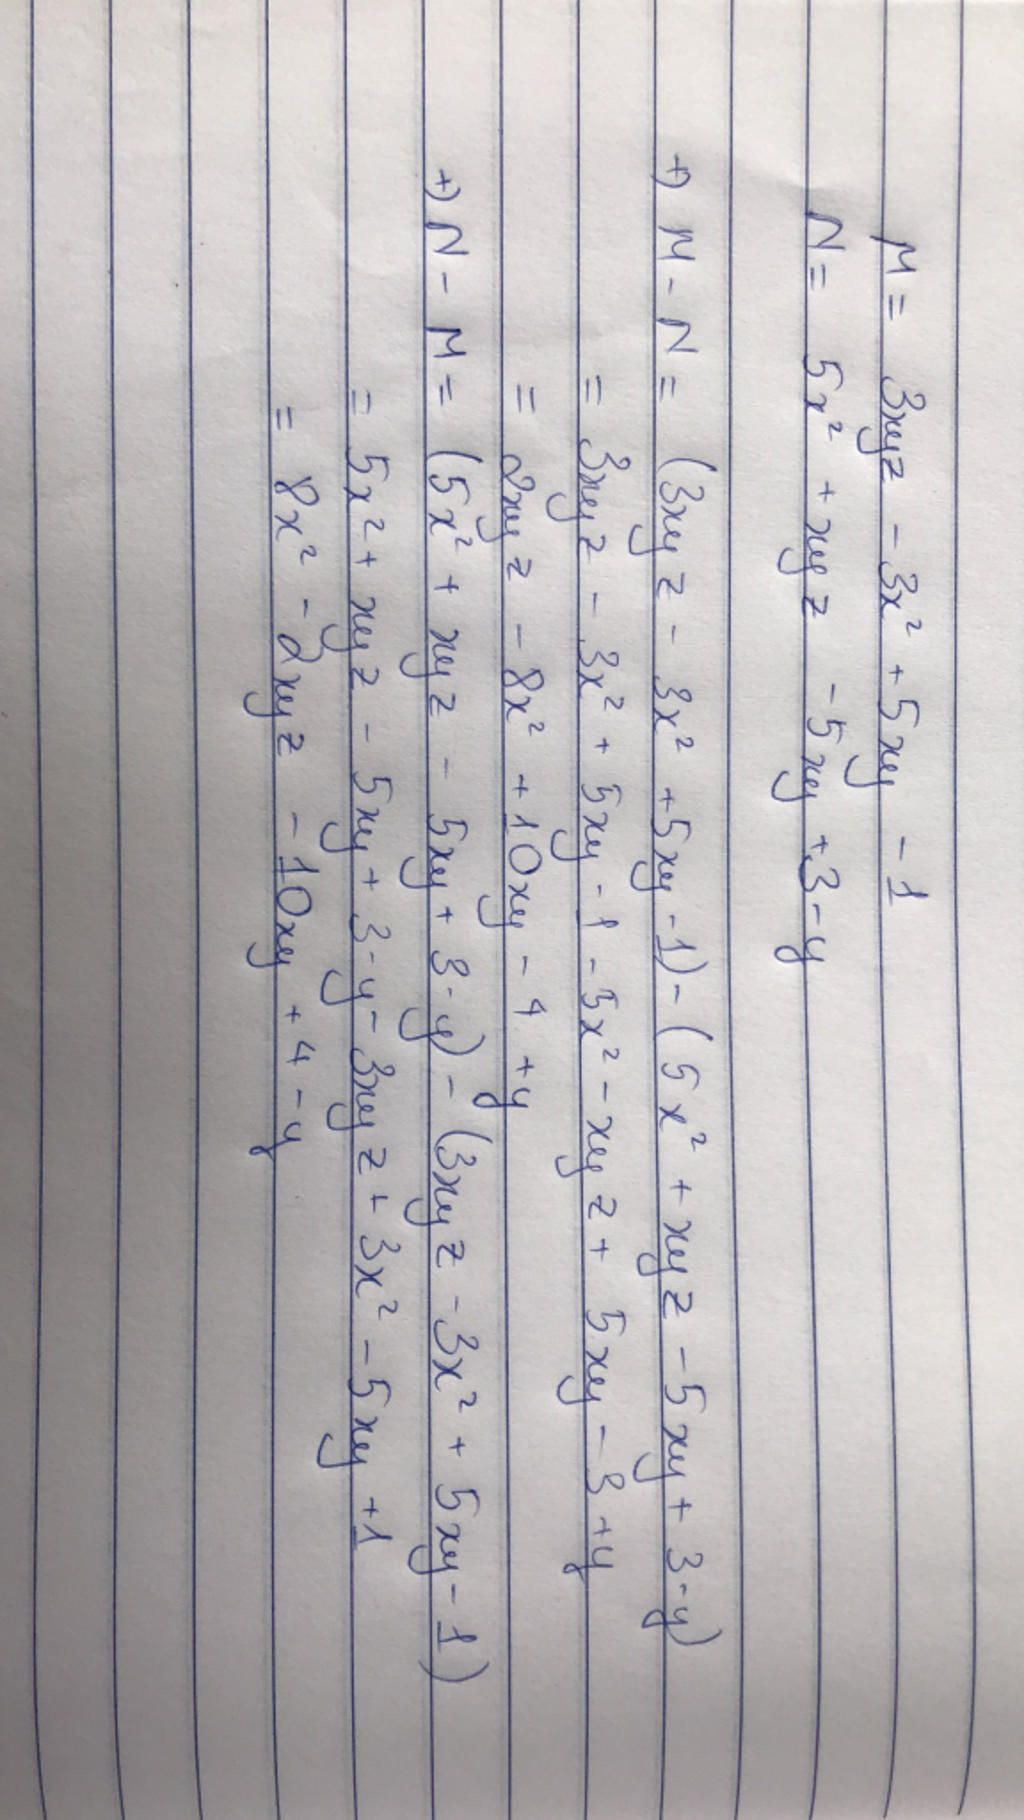 M = 3xyz - 3x² + 5xy - 1
N = 5x² + xyz - 5xy + 3 - y
+) M - N = (3xyz - 3x² + 5xy - 1) - (5x² + xyz - 5xy + 3 - y)
= 3xyz - 3x² + 5xy - 1 - 5x² - xyz + 5xy - 3 + y
= 2xyz - 8x² + 10xy - 4 + y
+) N - M = (5x² + xyz - 5xy + 3 - y) - (3xyz - 3x² + 5xy - 1)
= 5x² + xyz - 5xy + 3 - y - 3xyz + 3x² - 5xy + 1
= 8x² - 2xyz - 10xy + 4 - y